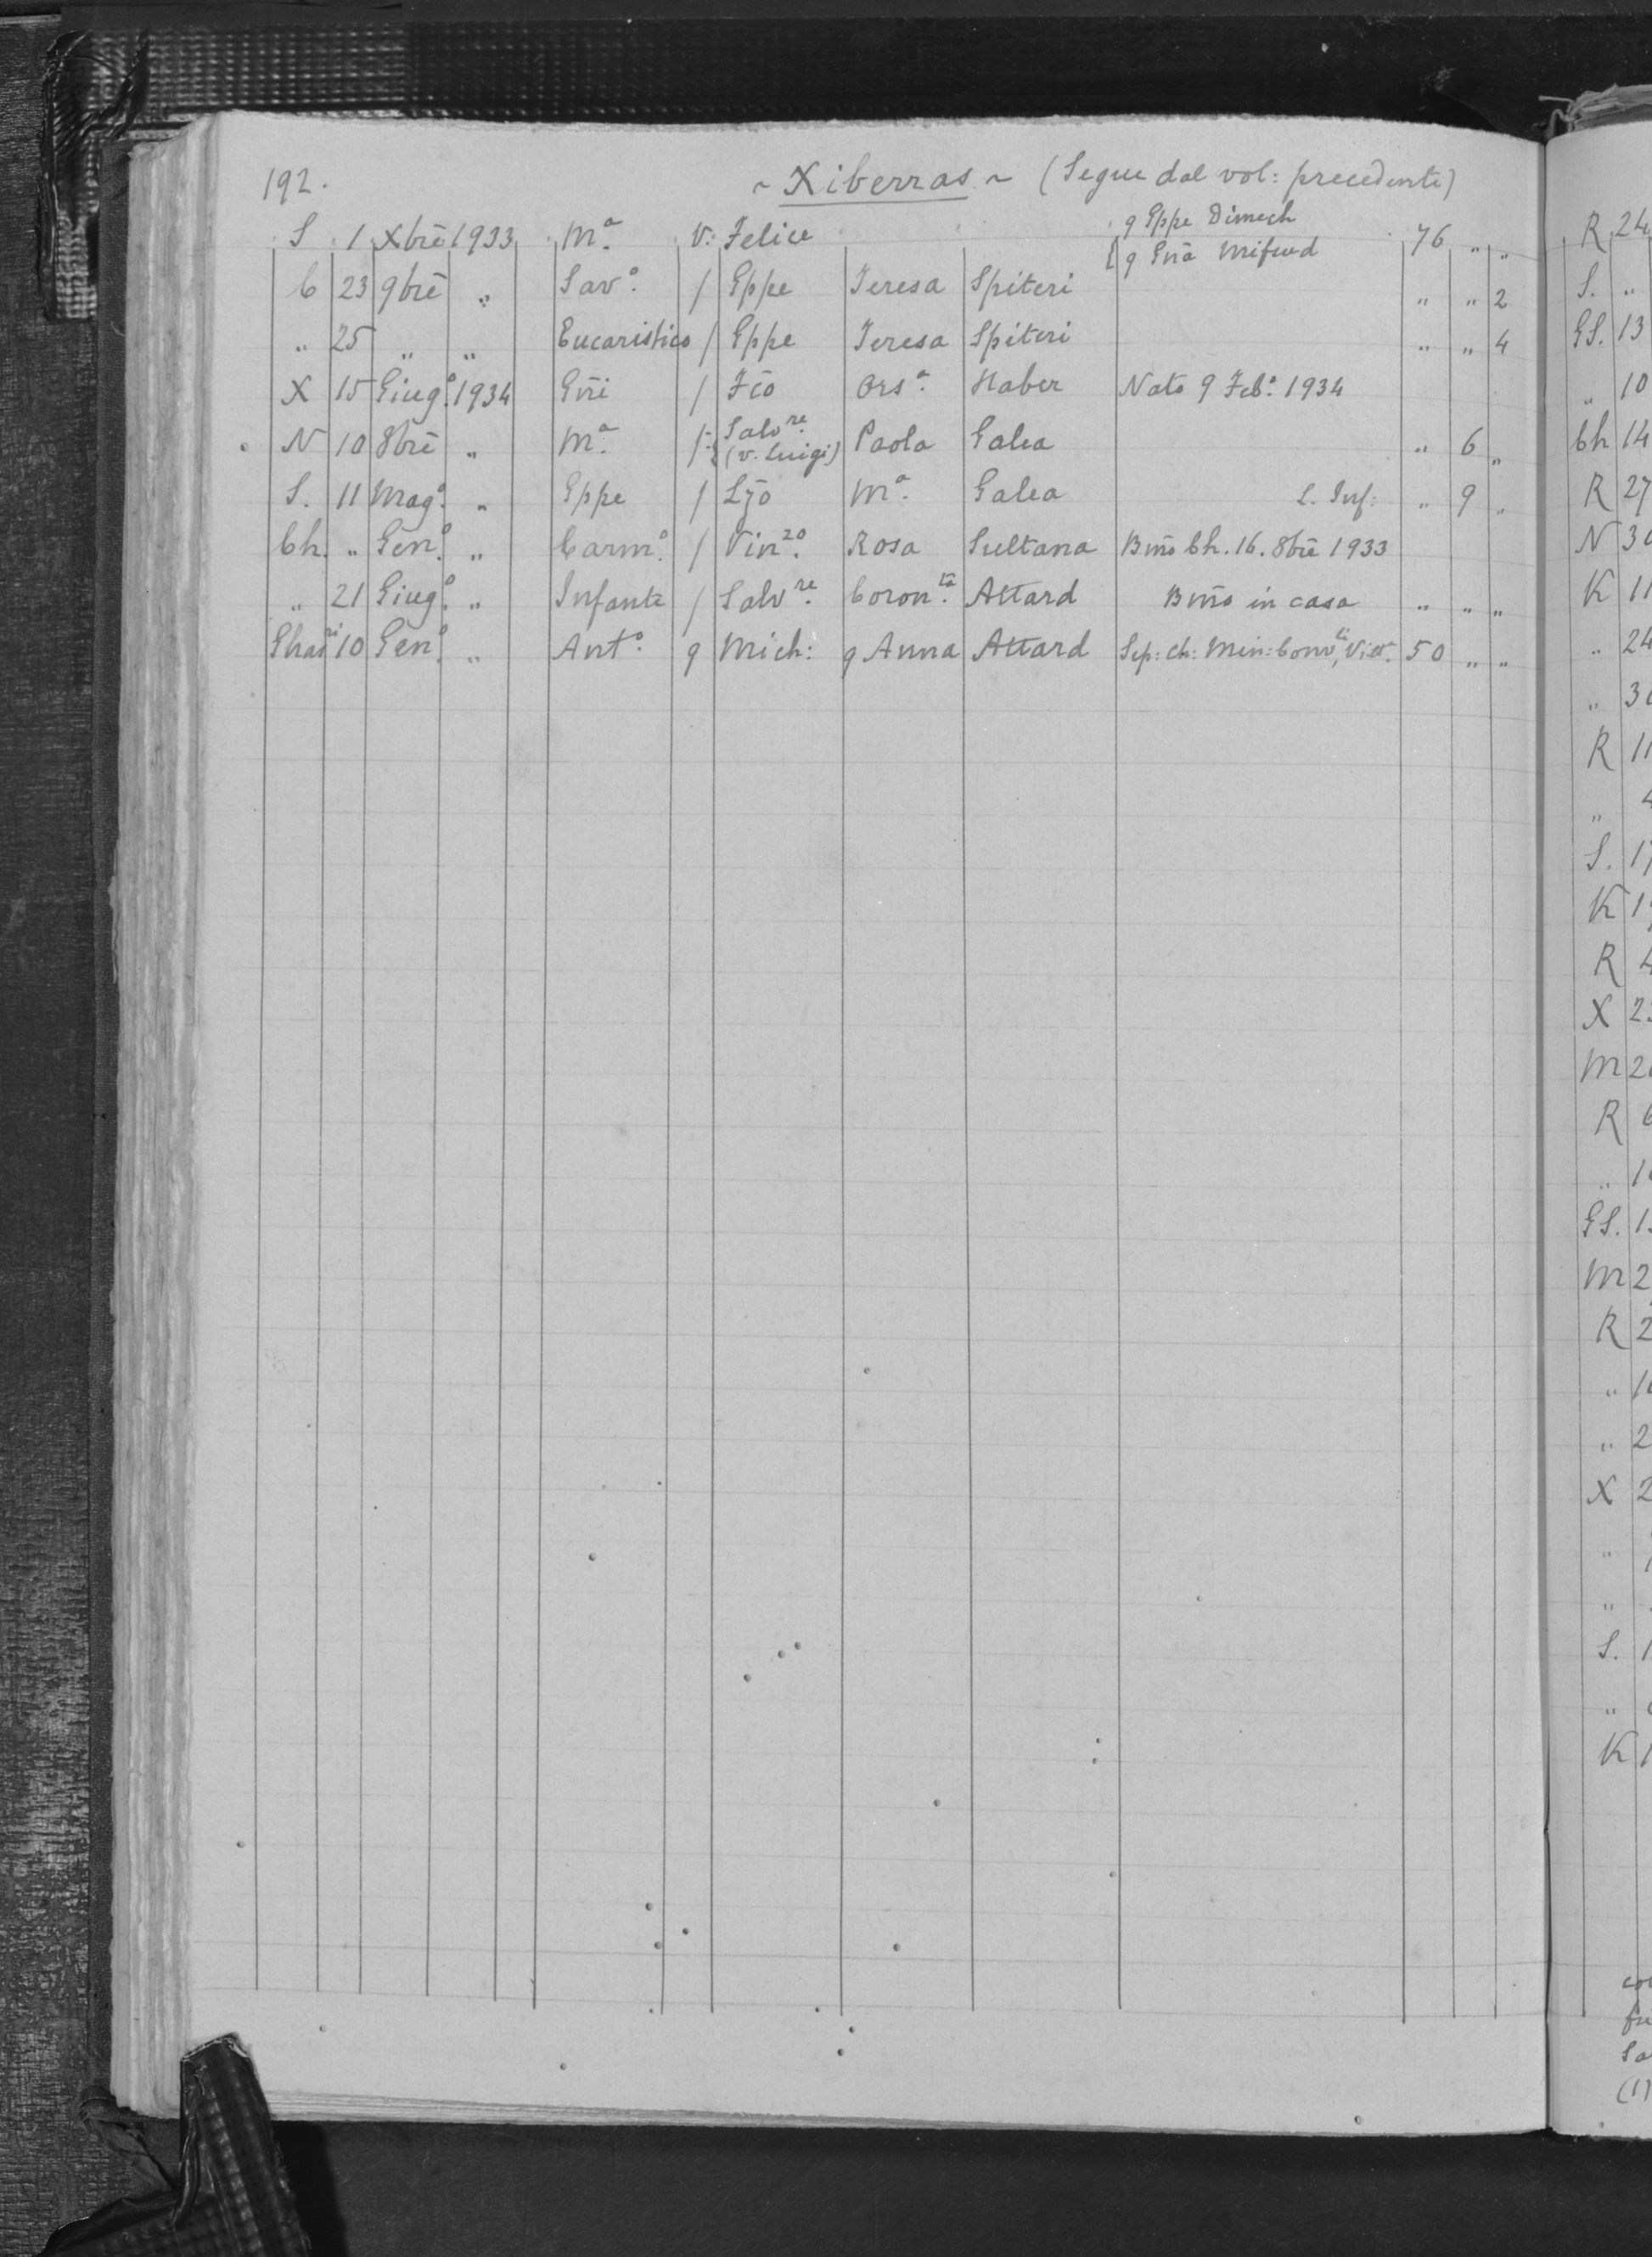 192.
~ Xiberras ~ (Segue dal vol: precedente)
S 1 Xbrē 1933 Mª. V: Felice { q Gppe Dimech 76 " "
q Gnā Mifsud
C 23 9brē " Savº. / Gppe Teresa Spiteri " " 2
" 25 " " Eucaristico / Gppe Teresa Spiteri " " 4
X 15 Giugº. 1934 Gñi / Fcō Orsª. Haber Nato 9 Febº. 1934
N 10 8brē " Mª. /- { Salvʳᵉ. Paola Galea " 6 "
(v. Luigi)
S. 11 Magº. " Gppe / Ljō Mª. Galea L. Inf: " 9 "
Ch. " Genº. " Carmº. / Vinᶻᵒ. Rosa Sultana Bmō Ch. 16. 8brē 1933
" 21 Giugº. " Infante / Salvʳᵉ. Coronᵗᵃ. Attard Bmō in casa " " "
Gharⁱ 10 Genº. " Antº. q Mich: q Anna Attard Sep: ch: Min: Convˡⁱ, Vitt. 50 " "
R 24
S. "
GS. 13
" 10
Ch 14
R 27
N 30
K 11
" 24
" 30
R 11
" 4
S. 17
K
R 4
X 2
M 2
R 6
" 1
GS. 1
M 2
R 2
" 1
" 2
X 2
"
"
S. 1
"
K 1
(1)